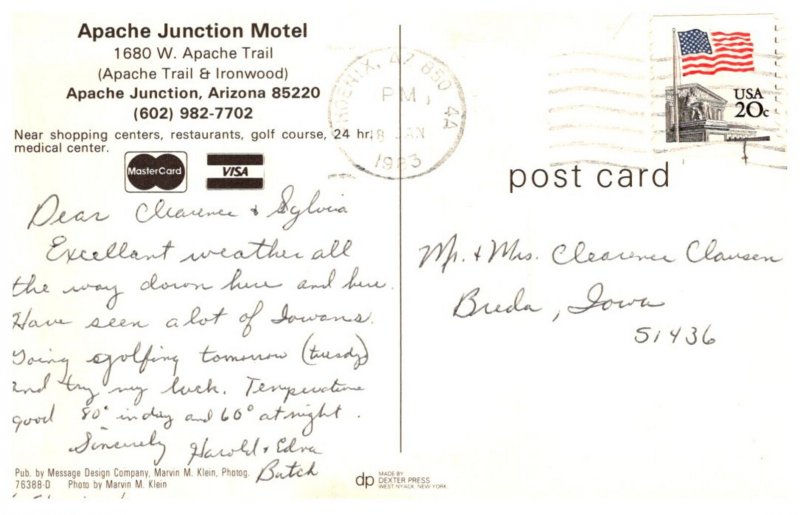 Apache Junction Motel
1680 W. Apache Trail
(Apache Trail & Ironwood)
Apache Junction, Arizona 85220
(602) 982-7702
Near shopping centers, restaurants, golf course, 24 hr.
medical center.
MasterCard
VISA
PHOENIX, AZ 850 4A
PM
18 JAN
1983
USA
20c
post card
Dear Clearence & Sylvia
Excellant weather all
the way down here and here.
Have seen alot of Iowans.
Going golfing tomorrow (tuesday)
and try my luck. Temperature
good 80° in day and 60° at night.
Sincerely Harold & Edna
Butch
Mr. & Mrs. Clearence Clausen
Breda, Iowa
51436
Pub. by Message Design Company, Marvin M. Klein, Photog.
76388-D Photo by Marvin M. Klein
dp
MADE BY
DEXTER PRESS
WEST NYACK, NEW YORK